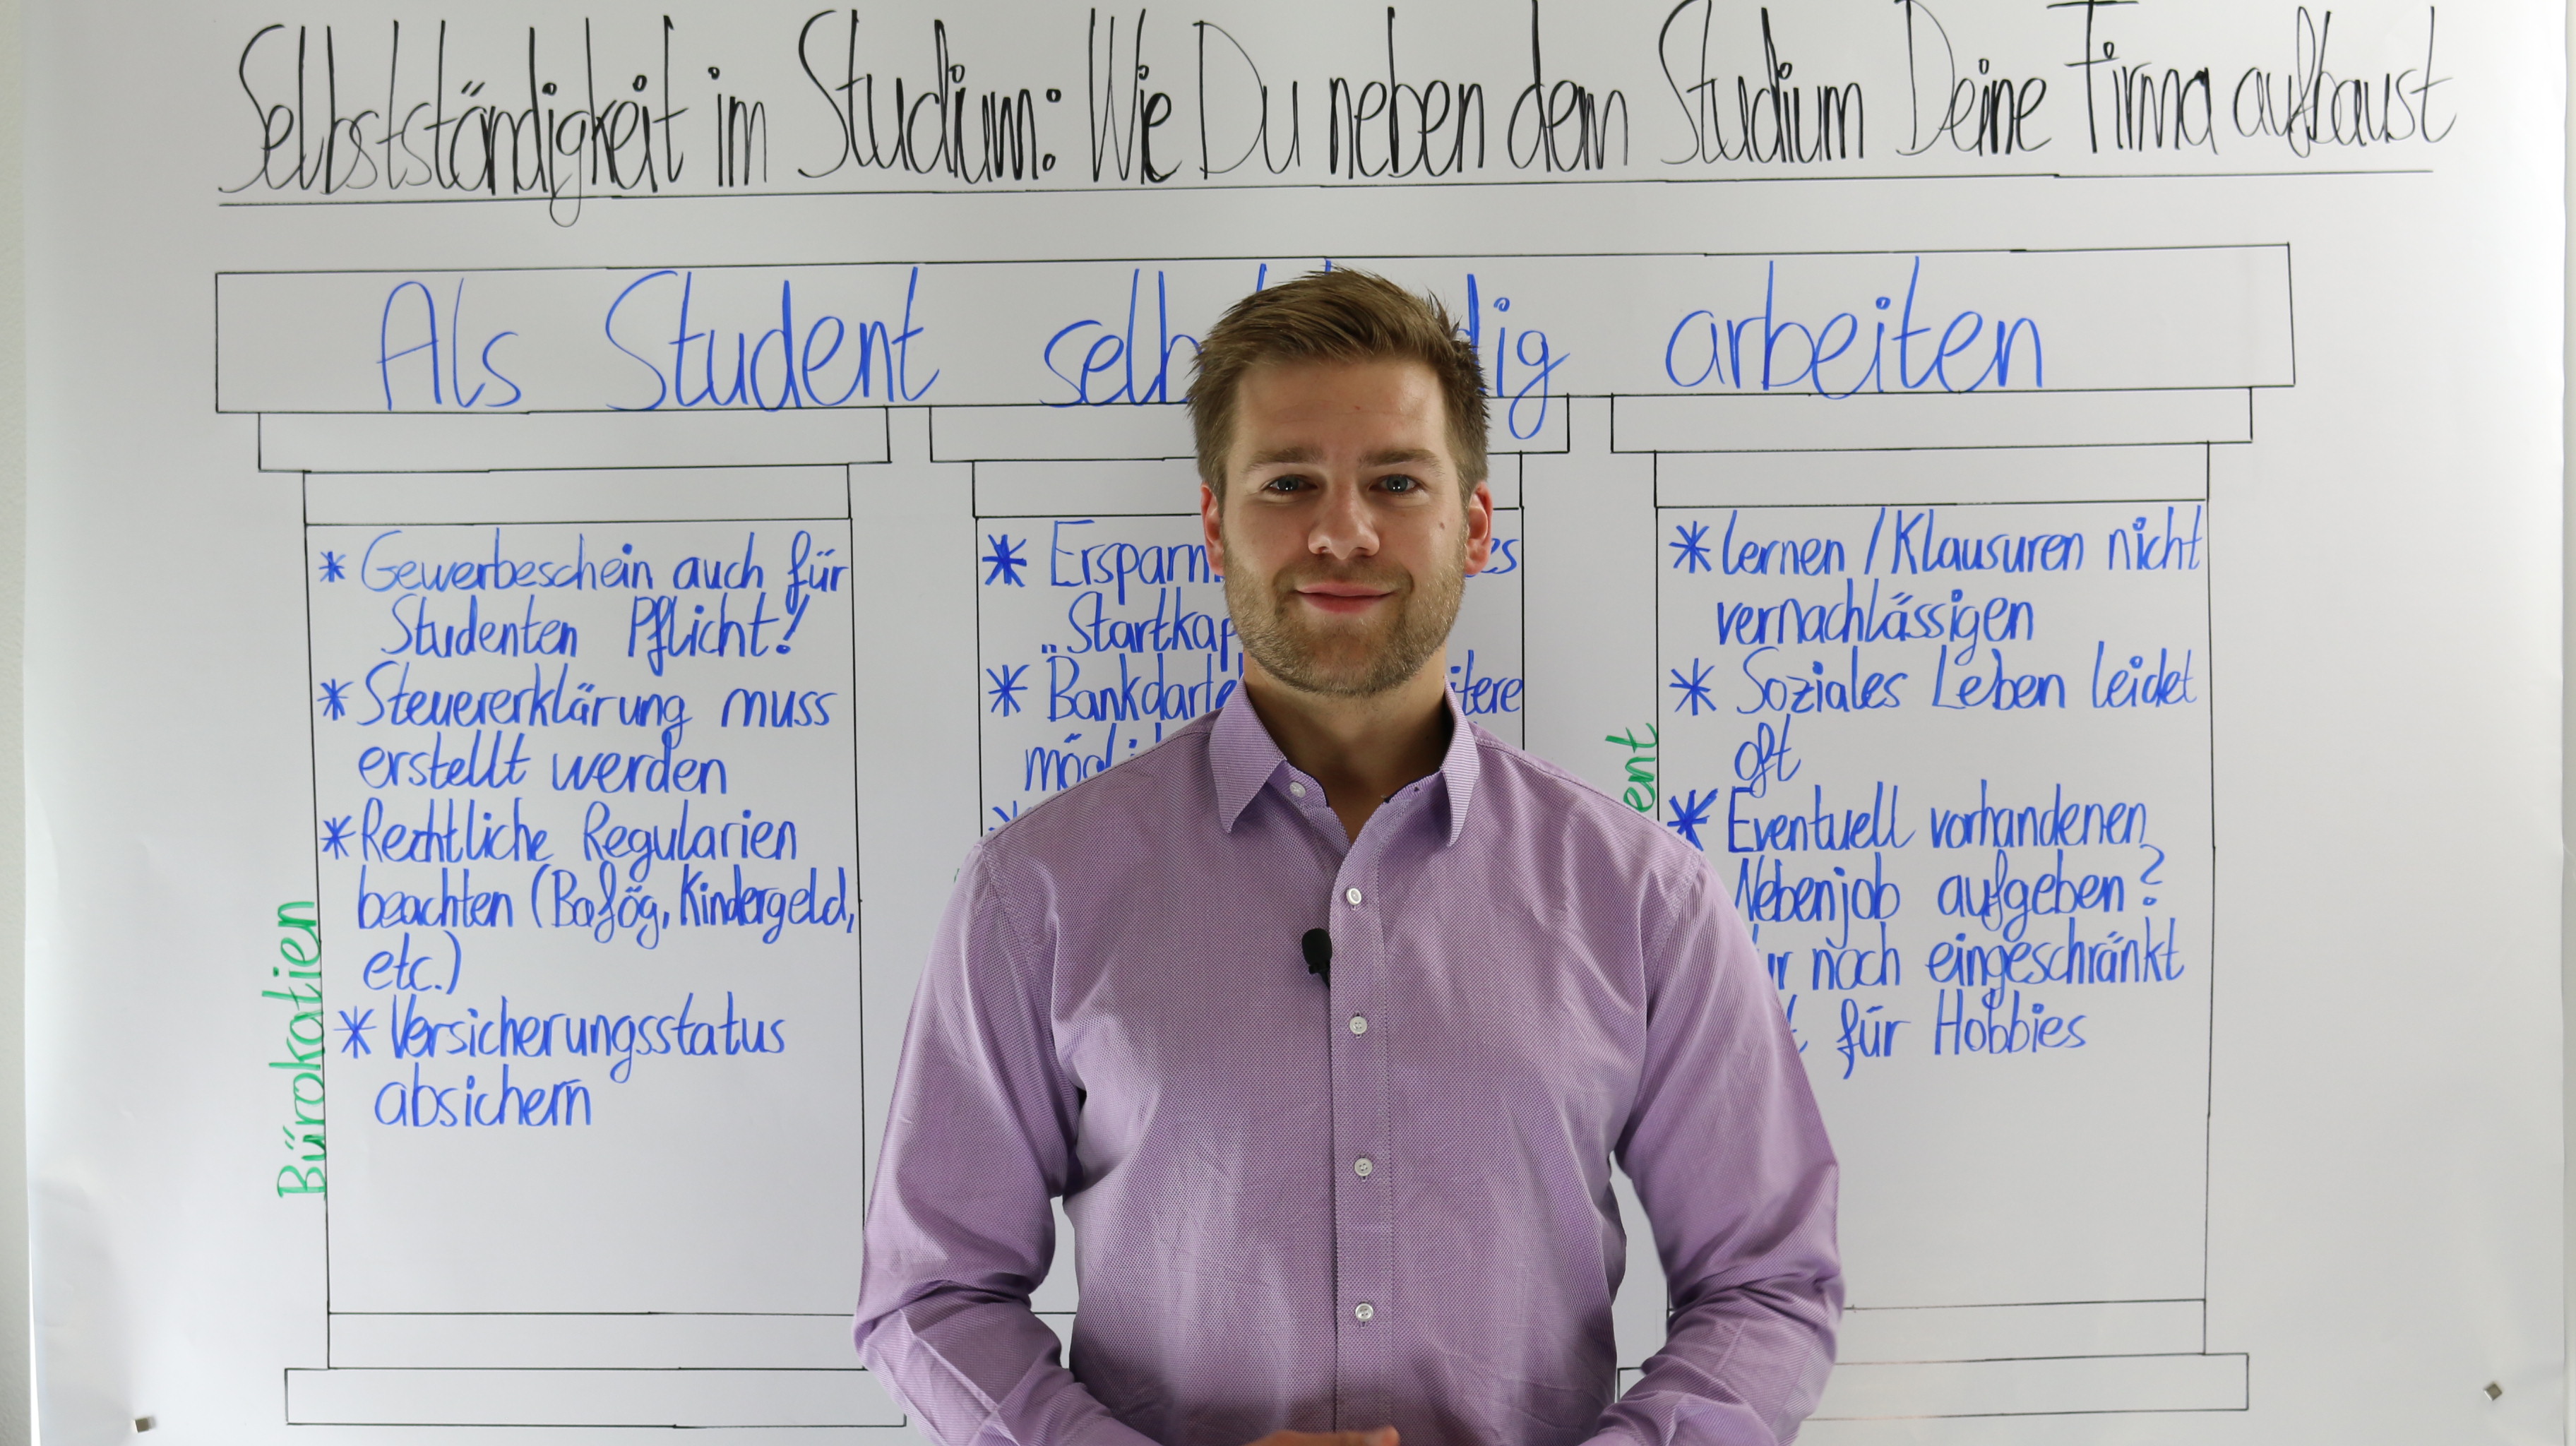 Selbstständigkeit im Studium: Wie Du neben dem Studium Deine Firma aufbaust
Als Student selb dig arbeiten
Bürokatien
* Gewerbeschein auch für
Studenten Pflicht!
* Steuererklärung muss
erstellt werden
* Rechtliche Regularien
beachten (Bafög, Kindergeld,
etc.)
* Versicherungsstatus
absichern
* Ersparn es
„Startkap
* Bankdarle itere
mögli
*
ent
* Lernen / Klausuren nicht
vernachlässigen
* Soziales Leben leidet
oft
* Eventuell vorhandenen
Nebenjob aufgeben?
ur noch eingeschränkt
t für Hobbies